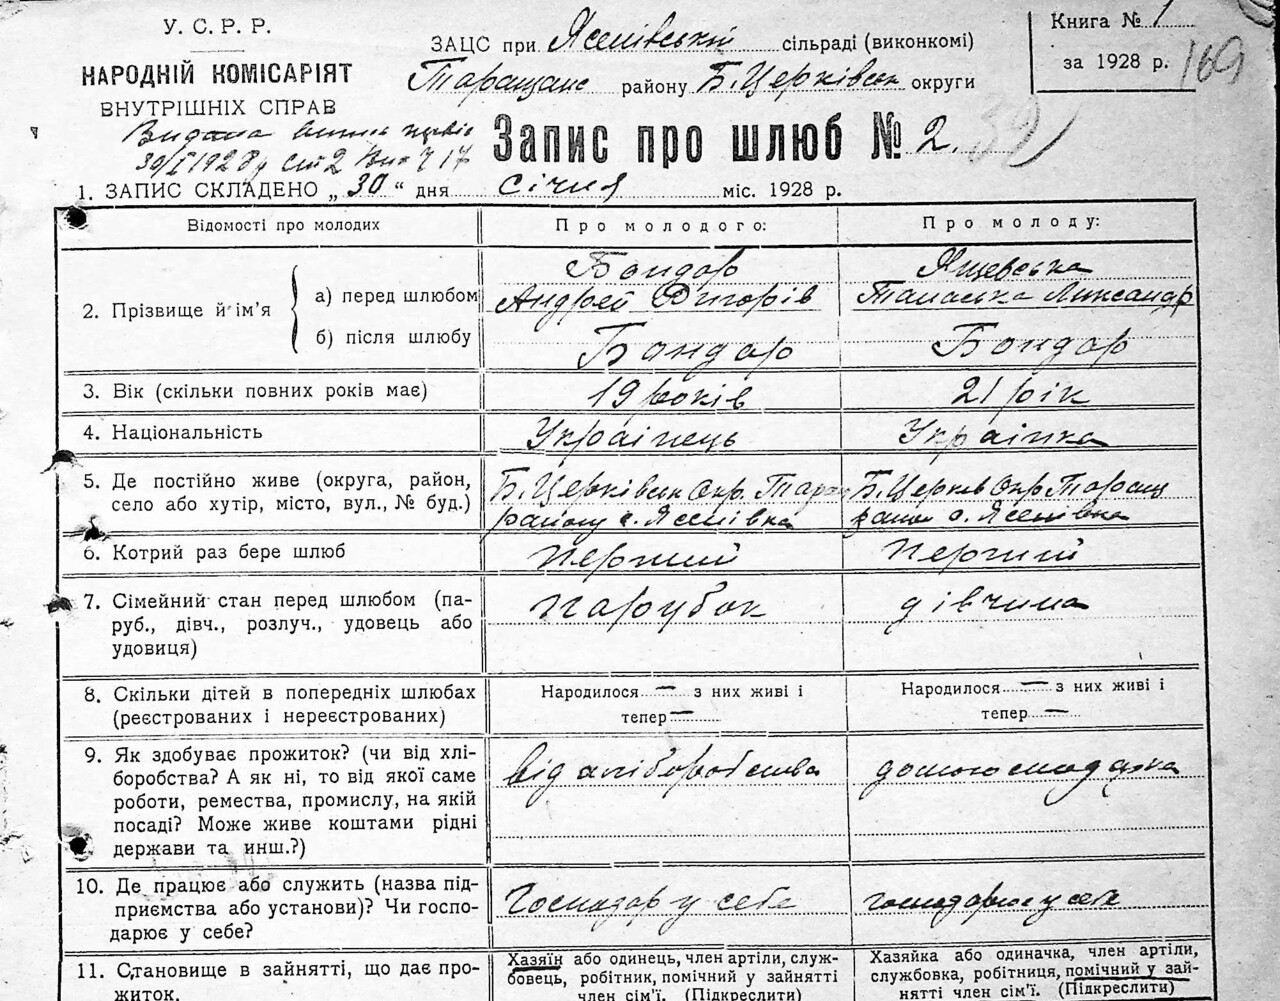 У. С. Р. Р.
НАРОДНІЙ КОМІСАРІЯТ
ВНУТРІШНІХ СПРАВ
Видана
30/I 1928
ЗАЦС при Ясенівській сільраді (виконкомі)
Таращанс району Б. Церківськ округи
Книга № 1
за 1928 р.
169
Запис про шлюб № 2.
39
1. ЗАПИС СКЛАДЕНО „ 30 “ дня січня міс. 1928 р.
Відомості про молодих
Про молодого:
Про молоду:
2. Прізвище й ім’я
а) перед шлюбом
Бондар
Андрей Григорів
Ящевська
Танаська Ликсандр
б) після шлюбу
Бондар
Бондар
3. Вік (скільки повних років має)
19 років
21 рік
4. Національність
Українець
Українка
5. Де постійно живе (округа, район,
село або хутір, місто, вул., № буд.)
Б. Церківськ Окр. Тара
району с. Ясенівка
Б. Церків Окр. Таращ
район с. Ясенівка
6. Котрий раз бере шлюб
перший
перший
7. Сімейний стан перед шлюбом (па-
руб., дівч., розлуч., удовець або
удовиця)
парубок
дівчина
8. Скільки дітей в попередніх шлюбах
(реєстрованих і нереєстрованих)
Народилося — з них живі і
тепер —
Народилося — з них живі і
тепер —
9. Як здобуває прожиток? (чи від хлі-
боробства? А як ні, то від якої саме
роботи, ремества, промислу, на якій
посаді? Може живе коштами рідні
держави та инш.?)
від хліборобства
10. Де працює або служить (назва під-
приємства або установи)? Чи госпо-
дарює у себе?
Господар у себе
господарює у себе
11. Становище в зайнятті, що дає про-
житок.
Хазяїн або одинець, член артіли, служ-
бовець, робітник, помічний у зайнятті
член сім’ї. (Підкреслити)
Хазяйка або одиначка, член артіли,
службовка, робітниця, помічний у зай-
нятті член сім’ї. (Підкреслити)